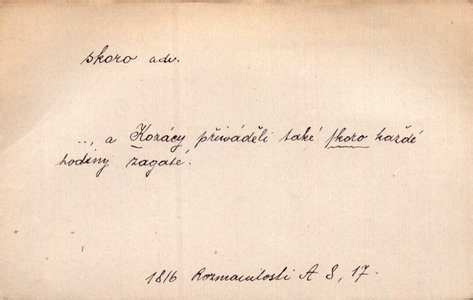 skoro adv.
.., a Kozácy přiwáděli také skoro každé
hodiny zagaté.
1816 Rozmanitosti A 8, 17.